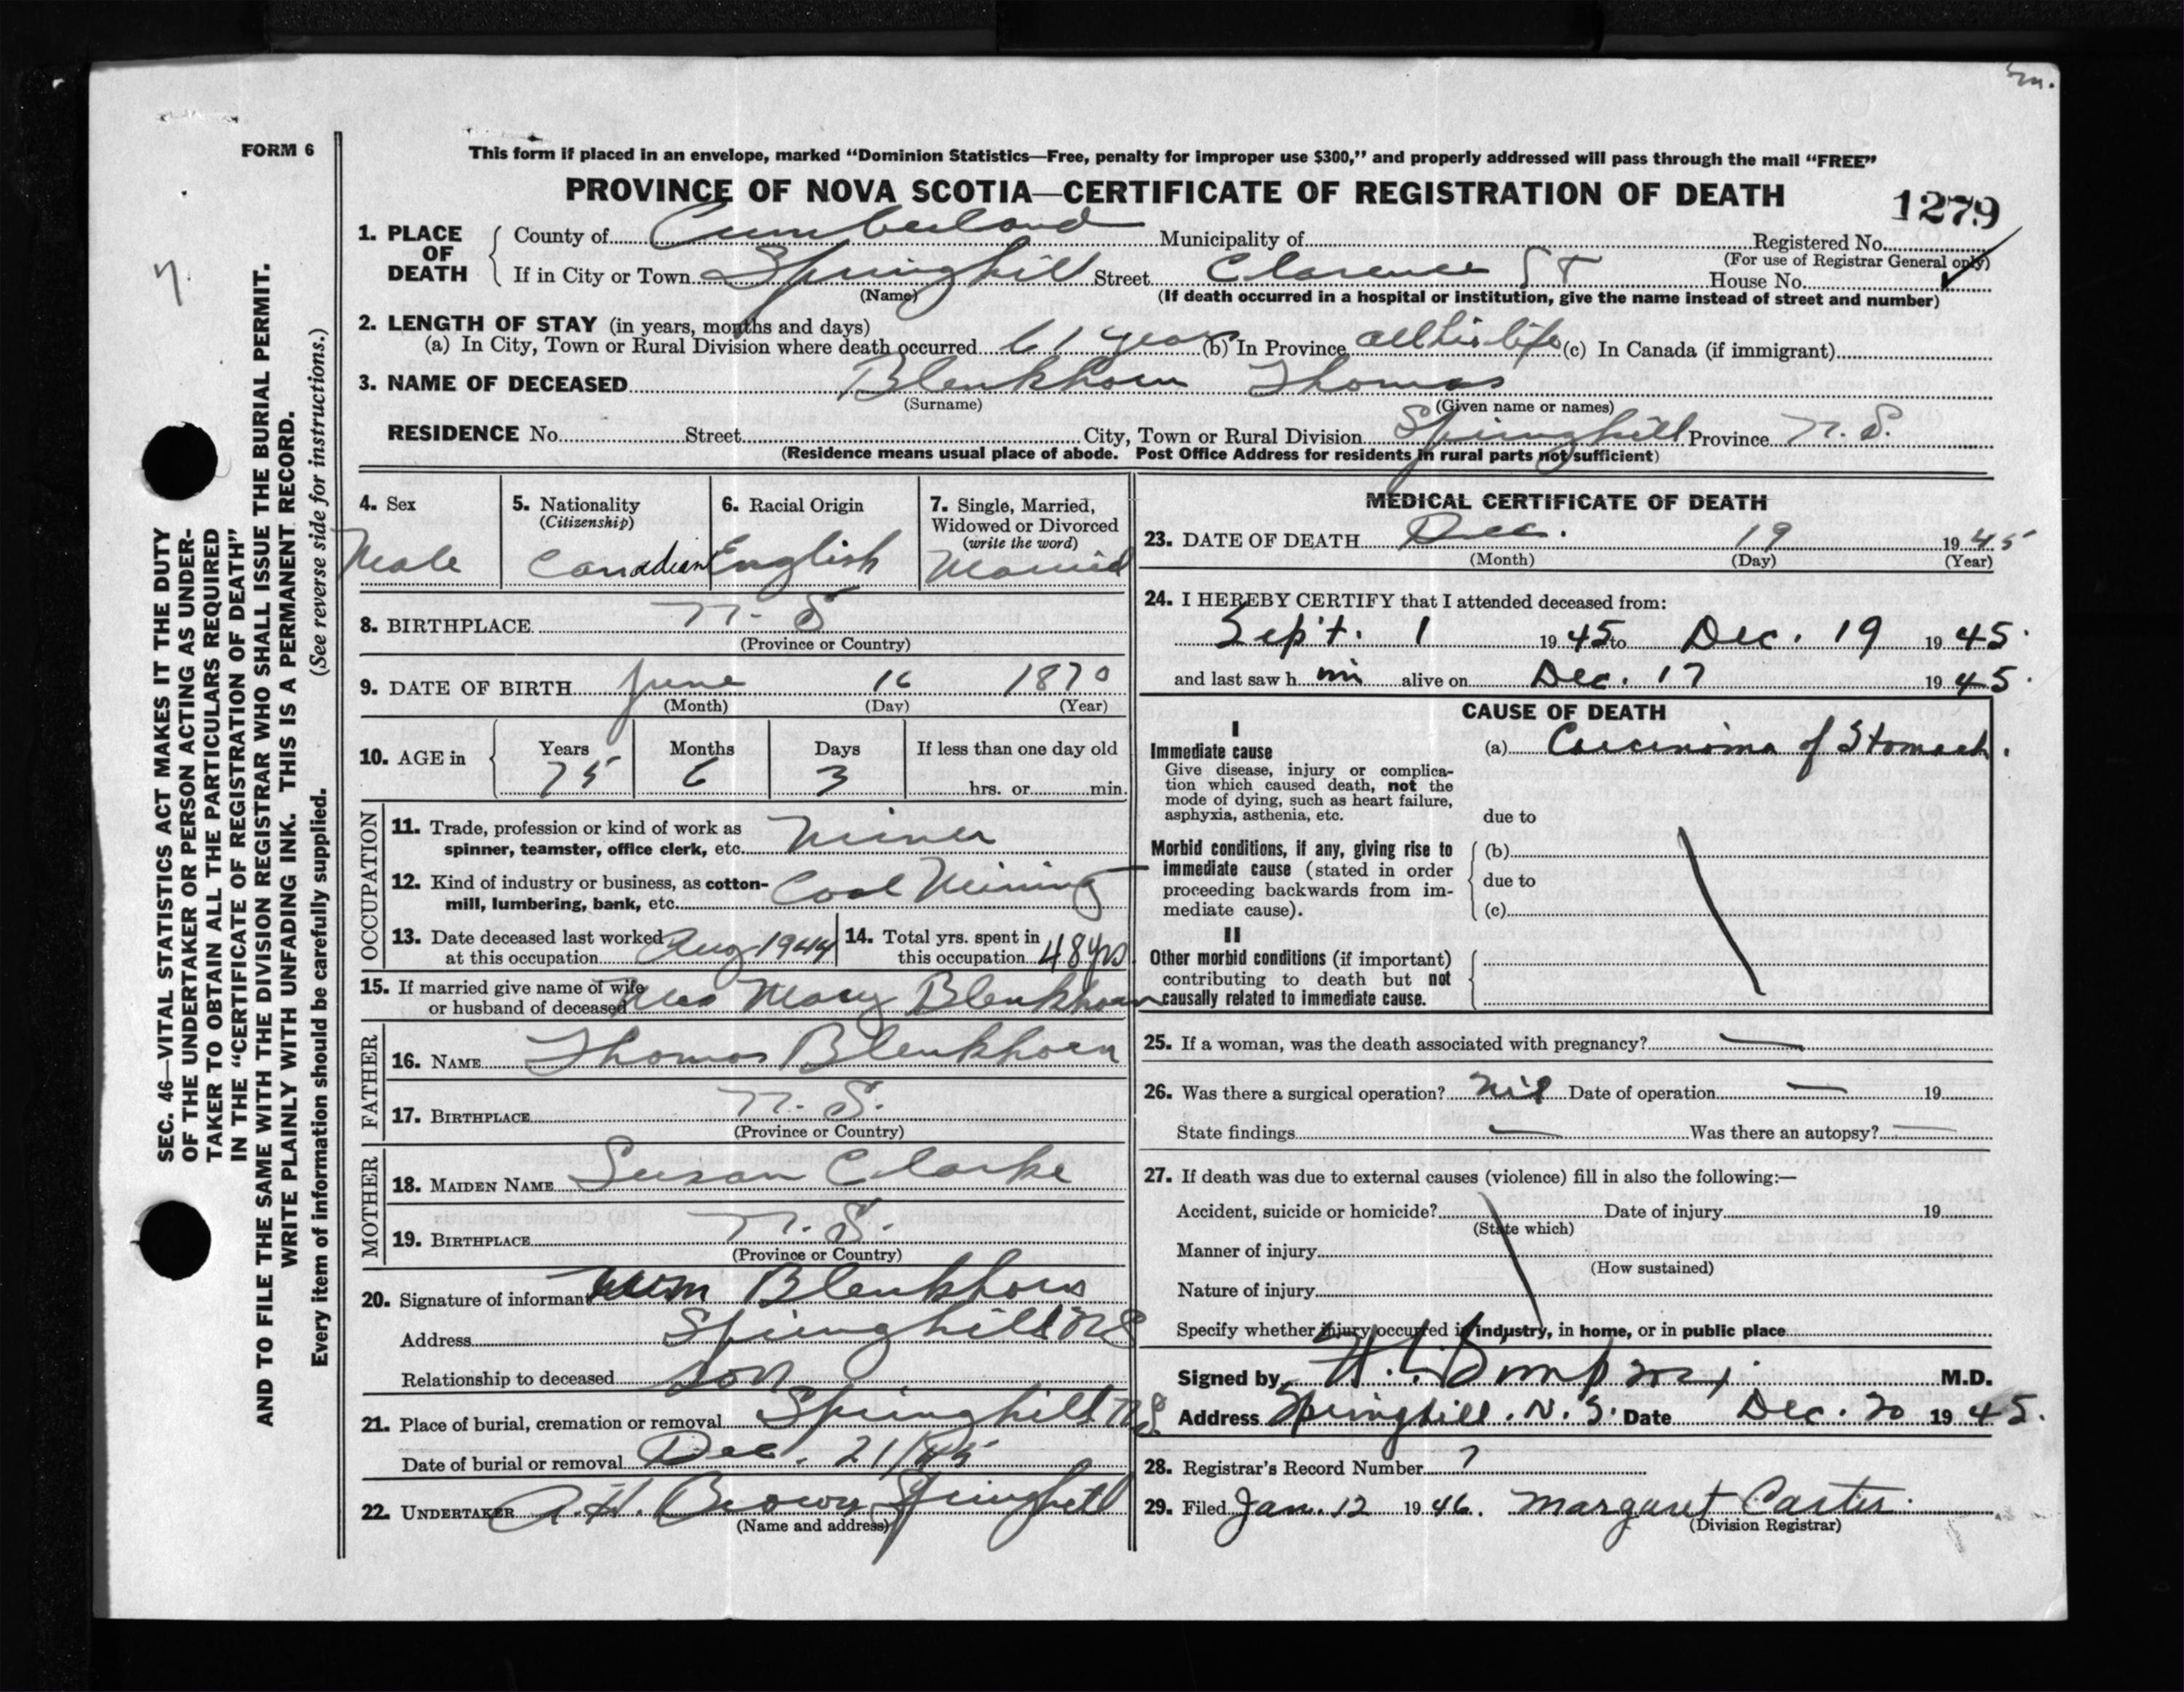 FORM 6
This form if placed in an envelope, marked “Dominion Statistics—Free, penalty for improper use $300,” and properly addressed will pass through the mail “FREE”
PROVINCE OF NOVA SCOTIA—CERTIFICATE OF REGISTRATION OF DEATH
1279
1. PLACE OF DEATH
County of Cumberland Municipality of Registered No.
(For use of Registrar General only)
If in City or Town Springhill Street Clarence St House No.
(Name) (If death occurred in a hospital or institution, give the name instead of street and number)
2. LENGTH OF STAY (in years, months and days)
(a) In City, Town or Rural Division where death occurred 61 years (b) In Province all his life (c) In Canada (if immigrant)
3. NAME OF DECEASED Blenkhorn Thomas
(Surname) (Given name or names)
RESIDENCE No. Street City, Town or Rural Division Springhill Province N. S.
(Residence means usual place of abode. Post Office Address for residents in rural parts not sufficient)
4. Sex
Male
5. Nationality
(Citizenship)
Canadian
6. Racial Origin
English
7. Single, Married,
Widowed or Divorced
(write the word)
Married
8. BIRTHPLACE N. S
(Province or Country)
9. DATE OF BIRTH June 16 1870
(Month) (Day) (Year)
10. AGE in Years Months Days If less than one day old
75 6 3 hrs. or min.
OCCUPATION
11. Trade, profession or kind of work as
spinner, teamster, office clerk, etc. Miner
12. Kind of industry or business, as cotton-
mill, lumbering, bank, etc. Coal Mining
13. Date deceased last worked
at this occupation Aug 1944
14. Total yrs. spent in
this occupation 48 yrs
15. If married give name of wife
or husband of deceased Mrs Mary Blenkhorn
FATHER
16. NAME Thomas Blenkhorn
17. BIRTHPLACE N. S.
(Province or Country)
MOTHER
18. MAIDEN NAME Susan Clarke
19. BIRTHPLACE N. S.
(Province or Country)
20. Signature of informant Wm Blenkhorn
Address Springhill NS
Relationship to deceased Son
21. Place of burial, cremation or removal Springhill N.S.
Date of burial or removal Dec. 21/45
22. UNDERTAKER A. H. Brown Springhill
(Name and address)
MEDICAL CERTIFICATE OF DEATH
23. DATE OF DEATH Dec. 19 1945
(Month) (Day) (Year)
24. I HEREBY CERTIFY that I attended deceased from:
Sept. 1 1945 to Dec. 19 1945.
and last saw h im alive on Dec. 17 1945.
CAUSE OF DEATH
I
Immediate cause (a) Carcinoma of Stomach.
Give disease, injury or complica-
tion which caused death, not the
mode of dying, such as heart failure,
asphyxia, asthenia, etc.
due to
Morbid conditions, if any, giving rise to
immediate cause (stated in order
proceeding backwards from im-
mediate cause).
(b)
due to
(c)
II
Other morbid conditions (if important)
contributing to death but not
causally related to immediate cause.
25. If a woman, was the death associated with pregnancy? —
26. Was there a surgical operation? Nil Date of operation — 19
State findings — Was there an autopsy? —
27. If death was due to external causes (violence) fill in also the following:—
Accident, suicide or homicide? Date of injury 19
(State which)
Manner of injury
(How sustained)
Nature of injury
Specify whether injury occurred in industry, in home, or in public place
Signed by M.D.
Address Springhill. N. S. Date Dec. 20 1945.
28. Registrar's Record Number 7
29. Filed Jan. 12 1946. Margaret Carter.
(Division Registrar)
7.
SEC. 46—VITAL STATISTICS ACT MAKES IT THE DUTY
OF THE UNDERTAKER OR PERSON ACTING AS UNDER-
TAKER TO OBTAIN ALL THE PARTICULARS REQUIRED
IN THE “CERTIFICATE OF REGISTRATION OF DEATH”
AND TO FILE THE SAME WITH THE DIVISION REGISTRAR WHO SHALL ISSUE THE BURIAL PERMIT.
WRITE PLAINLY WITH UNFADING INK. THIS IS A PERMANENT RECORD.
Every item of information should be carefully supplied. (See reverse side for instructions.)